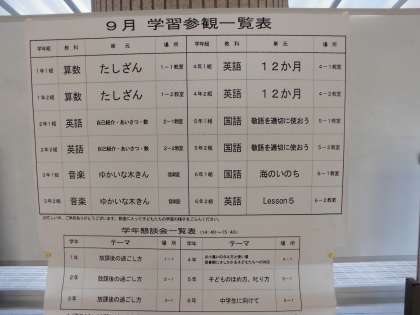 9月 学習参観一覧表
学年組 教科 単元 場所 学年組 教科 単元 場所
1年1組 算数 たしざん 1-1教室 4年1組 英語 12か月 4-1教室
1年2組 算数 たしざん 1-2教室 4年2組 英語 12か月 4-2教室
2年1組 英語 自己紹介・あいさつ・数 2-1教室 5年1組 国語 敬語を適切に使おう 5-1教室
2年2組 英語 自己紹介・あいさつ・数 2-2教室 5年2組 国語 敬語を適切に使おう 5-2教室
3年1組 音楽 ゆかいな木きん 音楽室 6年1組 国語 海のいのち 6-1教室
3年2組 音楽 ゆかいな木きん 音楽室 6年2組 英語 Lesson5 6-2教室
学年懇談会一覧表 (14:40~15:40)
学年 テーマ 場所 学年 テーマ 場所
1年 放課後の過ごし方 4年
2年 放課後の過ごし方 5年 子どものほめ方、叱り方
3年 放課後の過ごし方 6年 中学生に向けて